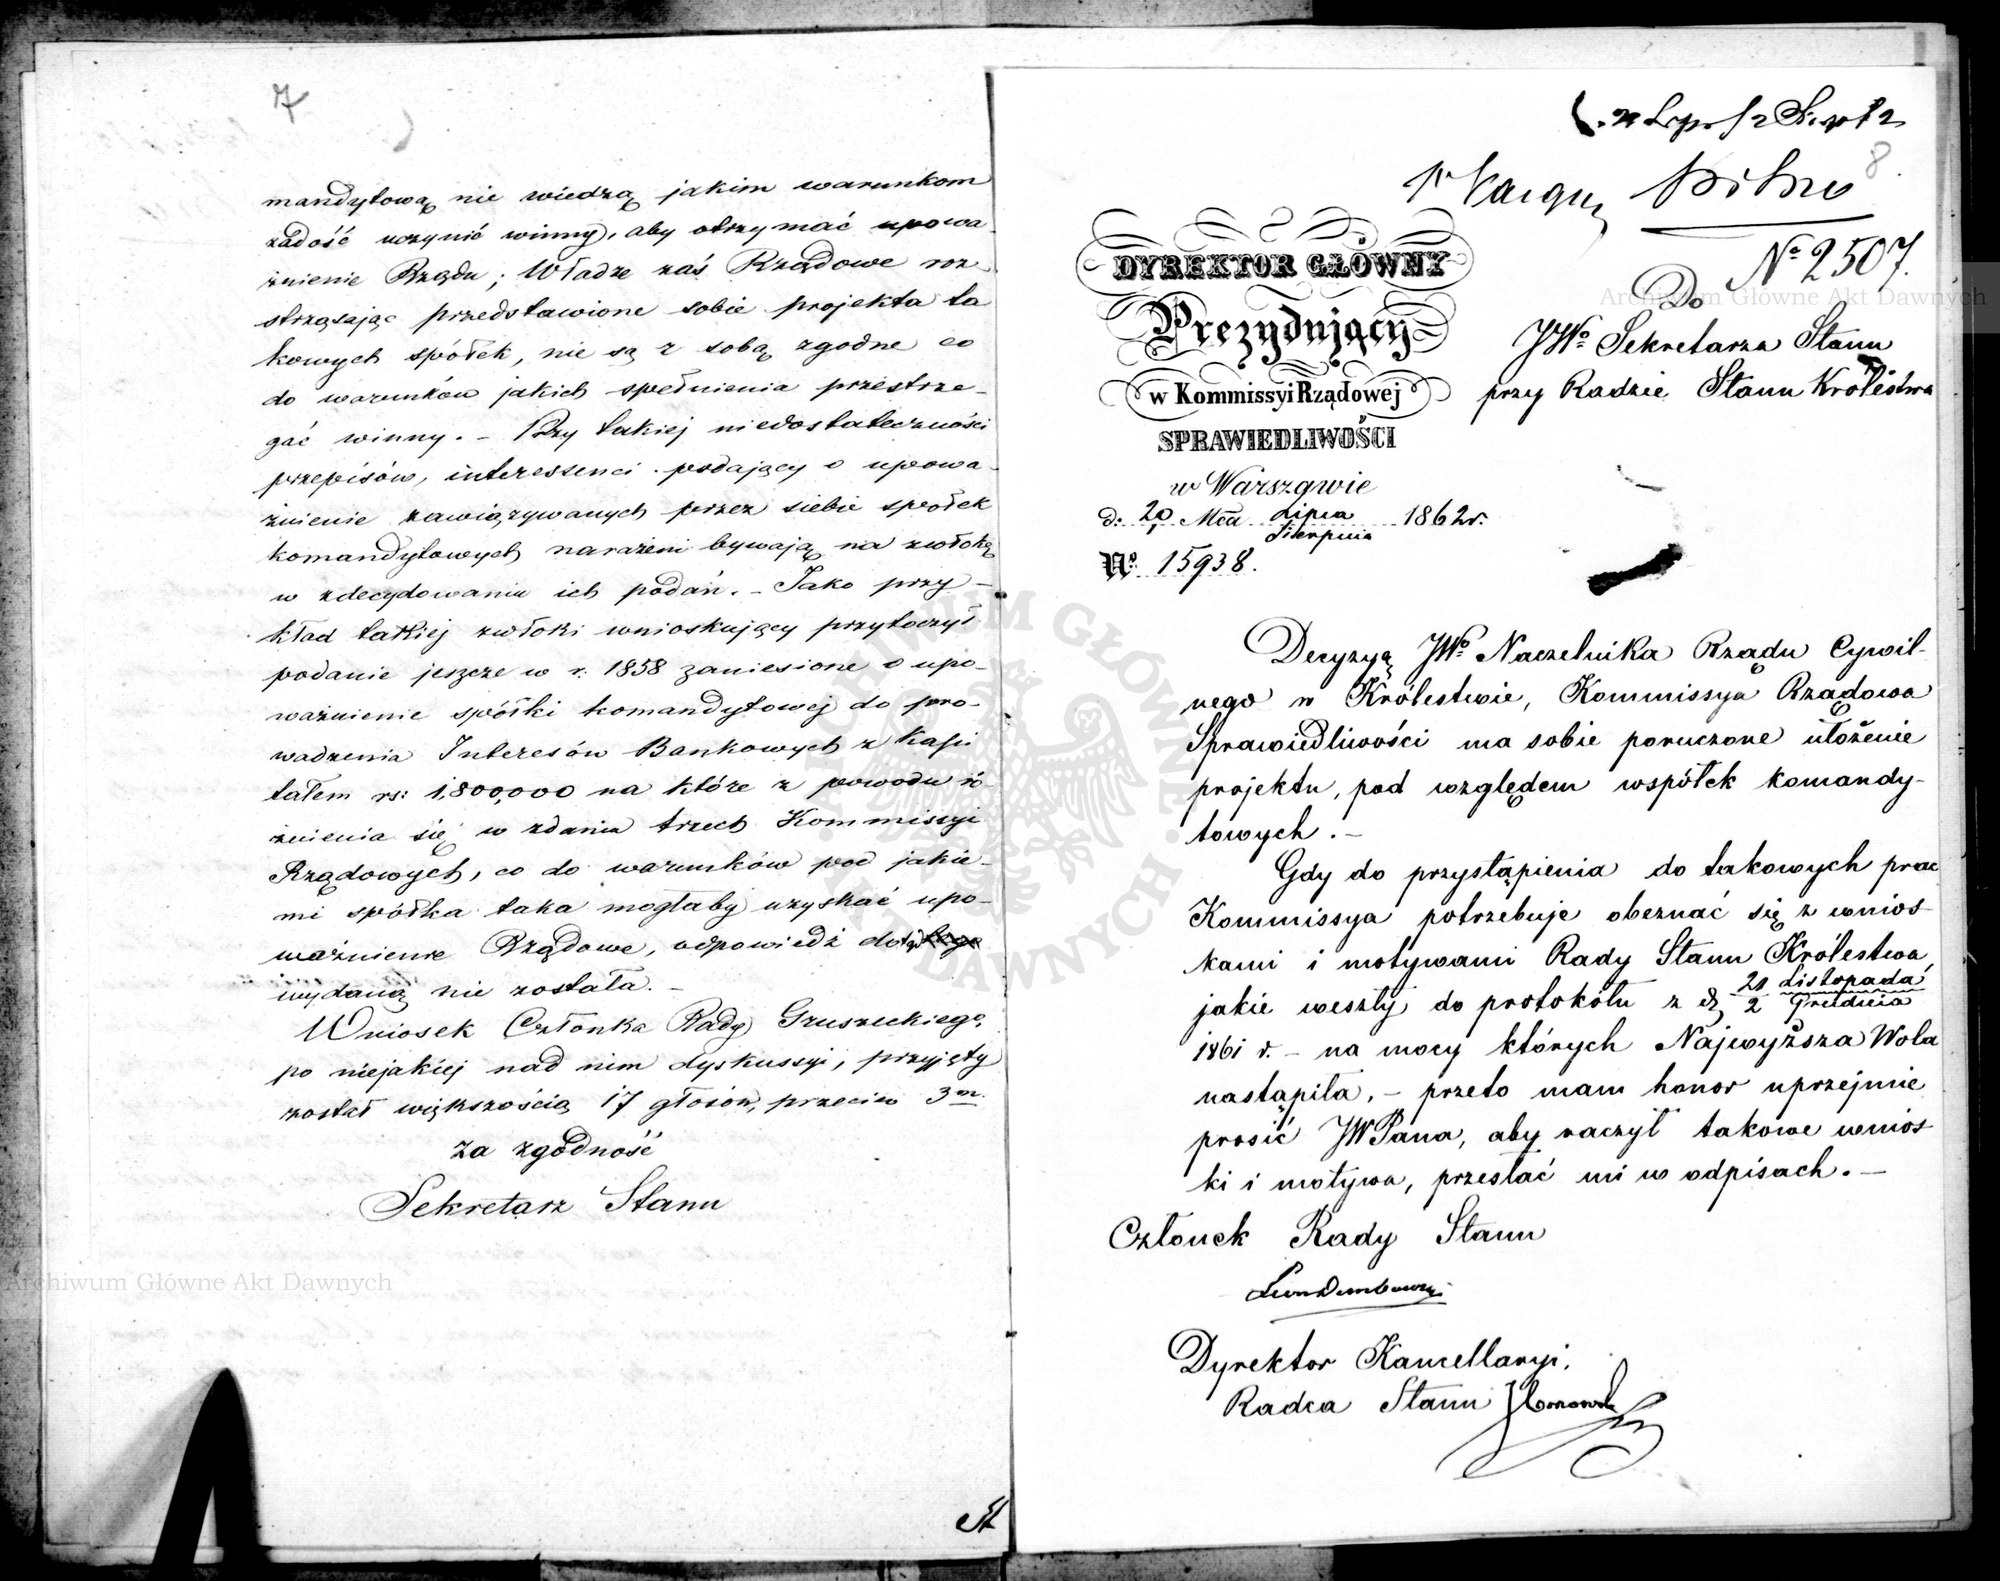 7
mandytową nie wiedzą jakim warunkom
zadość uczynić winny, aby otrzymać upowa
żnienie Rządu; Władze zaś Rządowe roz-
strząsając przedstawione sobie projekta ta
kowych spółek, nie są z sobą zgodne co
do warunków jakich spełnienia przestrze-
gać winny. – Przy takiej niedostateczności
przepisów, interessenci podający o upowa-
żnienie zawiązywanych przez siebie spółek
komandytowych narażeni bywają na zwłokę
w zdecydowaniu ich podań. – Jako przy-
kład takiej zwłoki wnioskujący przytoczył
podanie jeszcze w r. 1858 zaniesione o upo-
ważnienie spółki komandytowej do pro-
wadzenia Interesów Bankowych z Kapi
tałem rs: 1,800,000 na które z powodu ró-
żnienia się w zdaniu trzech Kommissyi
Rządowych, co do warunków pod jakie-
mi spółka taka mogłaby uzyskać upo-
ważnienie Rządowe, odpowiedź dotąd
wydaną nie została. –
Wniosek Członka Rady Gruszeckiego,
po niejakiej nad nim dyskussyi, przyjęty
został większością 17 głosów, przeciw 3m.
Za zgodność
Sekretarz Stanu
8
No 2507.
DYREKTOR GŁÓWNY
Prezydujący
w Kommissyi Rządowej
SPRAWIEDLIWOŚCI
w Warszawie
d: 20/1 Mca Lipca/Sierpnia 1862 r.
No 15938.
Do
JWo Sekretarza Stanu
przy Radzie Stanu Królestwa
Decyzyą JWo Naczelnika Rządu Cywil-
nego w Królestwie, Kommissya Rządowa
Sprawiedliwości ma sobie poruczone ułożenie
projektu, pod względem współek komandy-
towych. –
Gdy do przystąpienia do takowych prac
Kommissya potrzebuje obeznać się z wnios-
kami i motywami Rady Stanu Królestwa,
jakie weszły do protokółu z d. 20 Listopada/2 Grudnia
1861 r. – na mocy których Najwyższa Wola
nastąpiła, – przeto mam honor uprzejmie
prosić JWPana, aby raczył takowe wnios-
ki i motywa, przesłać mi w odpisach. –
Członek Rady Stanu
Leon Dembowski
Dyrektor Kancellaryi,
Radca Stanu
Archiwum Główne Akt Dawnych
Archiwum Główne Akt Dawnych
ARCHIWUM GŁÓWNE AKT DAWNYCH